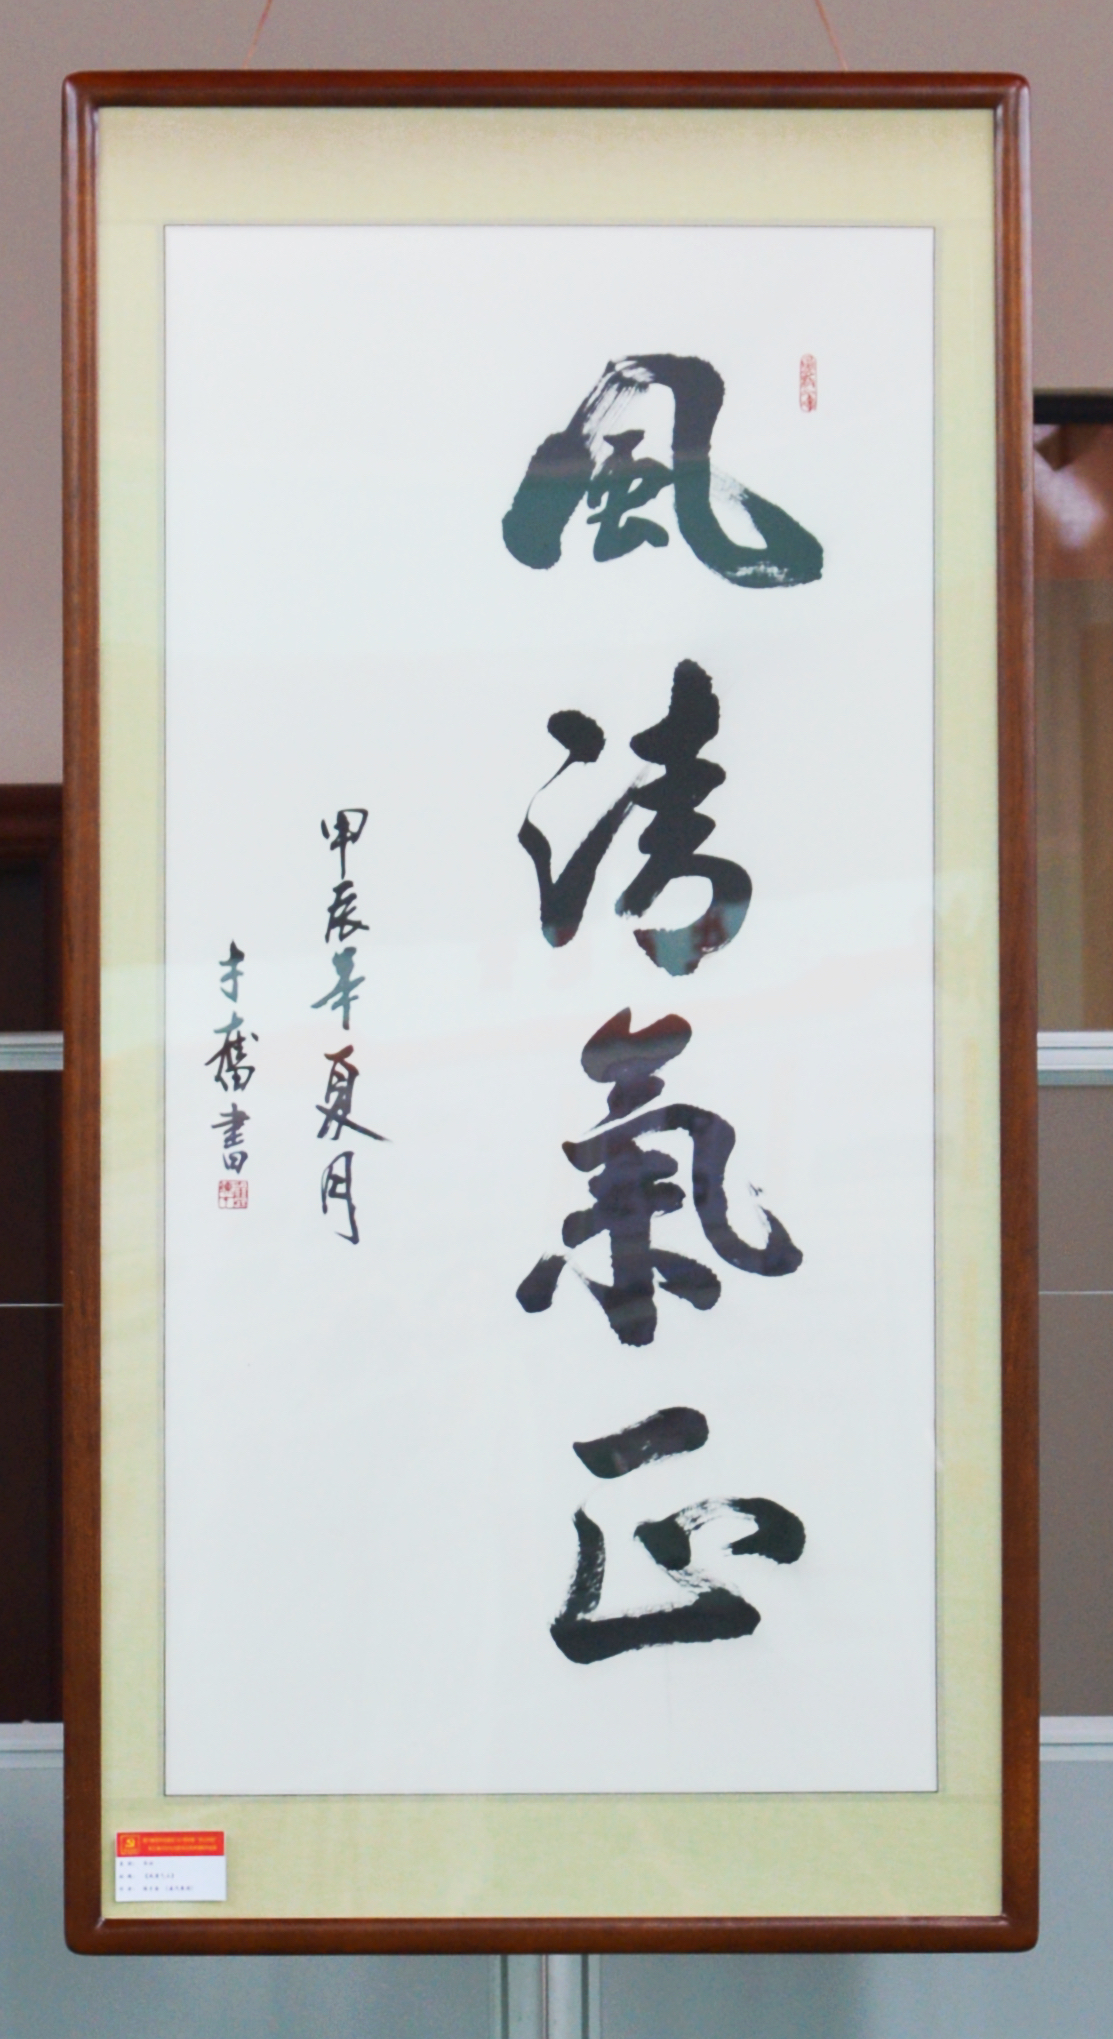 風清氣正
甲辰年夏月
才奮書